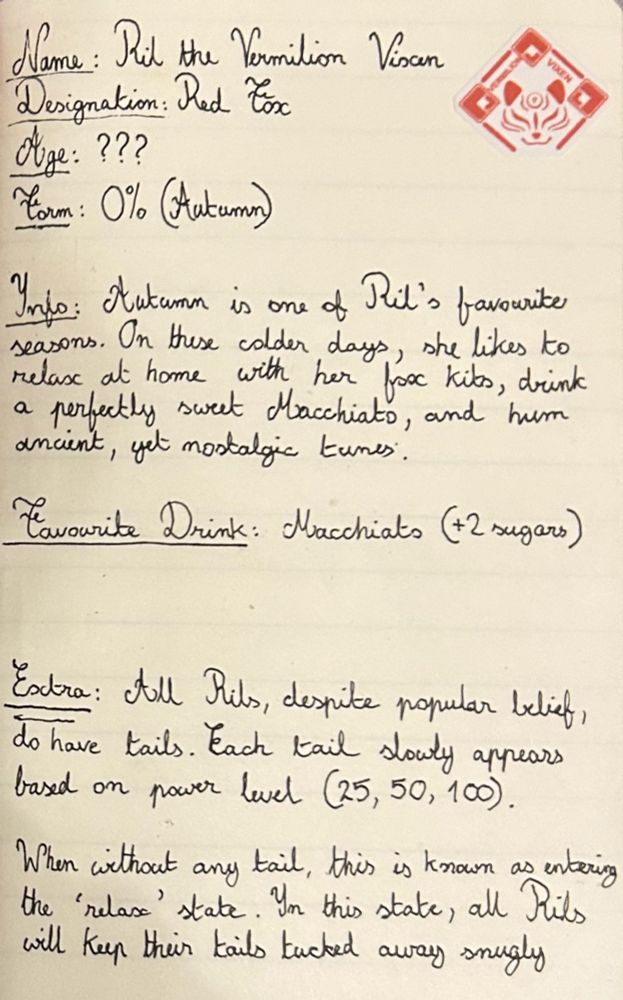 Name: Ril the Vermilion Vixen
Designation: Red Fox
Age: ???
Form: 0% (Autumn)
VERMILION VIXEN
Info: Autumn is one of Ril's favourite
seasons. On these colder days, she likes to
relax at home with her fox kits, drink
a perfectly sweet Macchiato, and hum
ancient, yet nostalgic tunes.
Favourite Drink: Macchiato (+2 sugars)
Extra: All Rils, despite popular belief,
do have tails. Each tail slowly appears
based on power level (25, 50, 100).
When without any tail, this is known as entering
the 'relax' state. In this state, all Rils
will keep their tails tucked away snugly